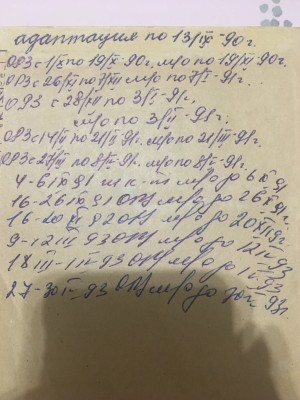 адаптация по 13/IX-90г.
ОРЗ с 1/X по 19/X-90г. м/о по 19/XI 90г.
ОРЗ с 26/XI по 7/XII м/о по 7/I-91г.
ОРЗ с 28/XII по 3/I-91г.,
м/о по 3/II-91г.
ОРЗ с 14/II по 21/II 91г. м/о по 21/III-91г.
ОРЗ с 27/III по 8/IV-91г. м/о по 8/V-91г.
4-6 XI 91 м/о до 6 XII 91
16-26 XI 91 ОРЗ м/о до 26 XII 91г.
16-20 XI 92 ОРЗ м/о до 20 XII 92г.
9-12 III 93 ОРЗ м/о до 12 IV 93
18 III-1 IV 93 ОРЗ м/о до 1 V 93
27-30 IV 93 ОРЗ м/о до 30 V 93г.